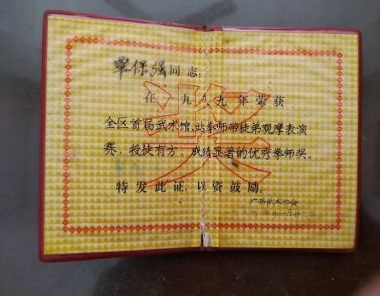 覃保强同志:
在一九八九年荣获
全区首届武术馆、站拳师带徒弟观摩表演
赛，授技有方，成绩显著的优秀拳师奖。
特发此证，以资鼓励。
广西武术协会
奖